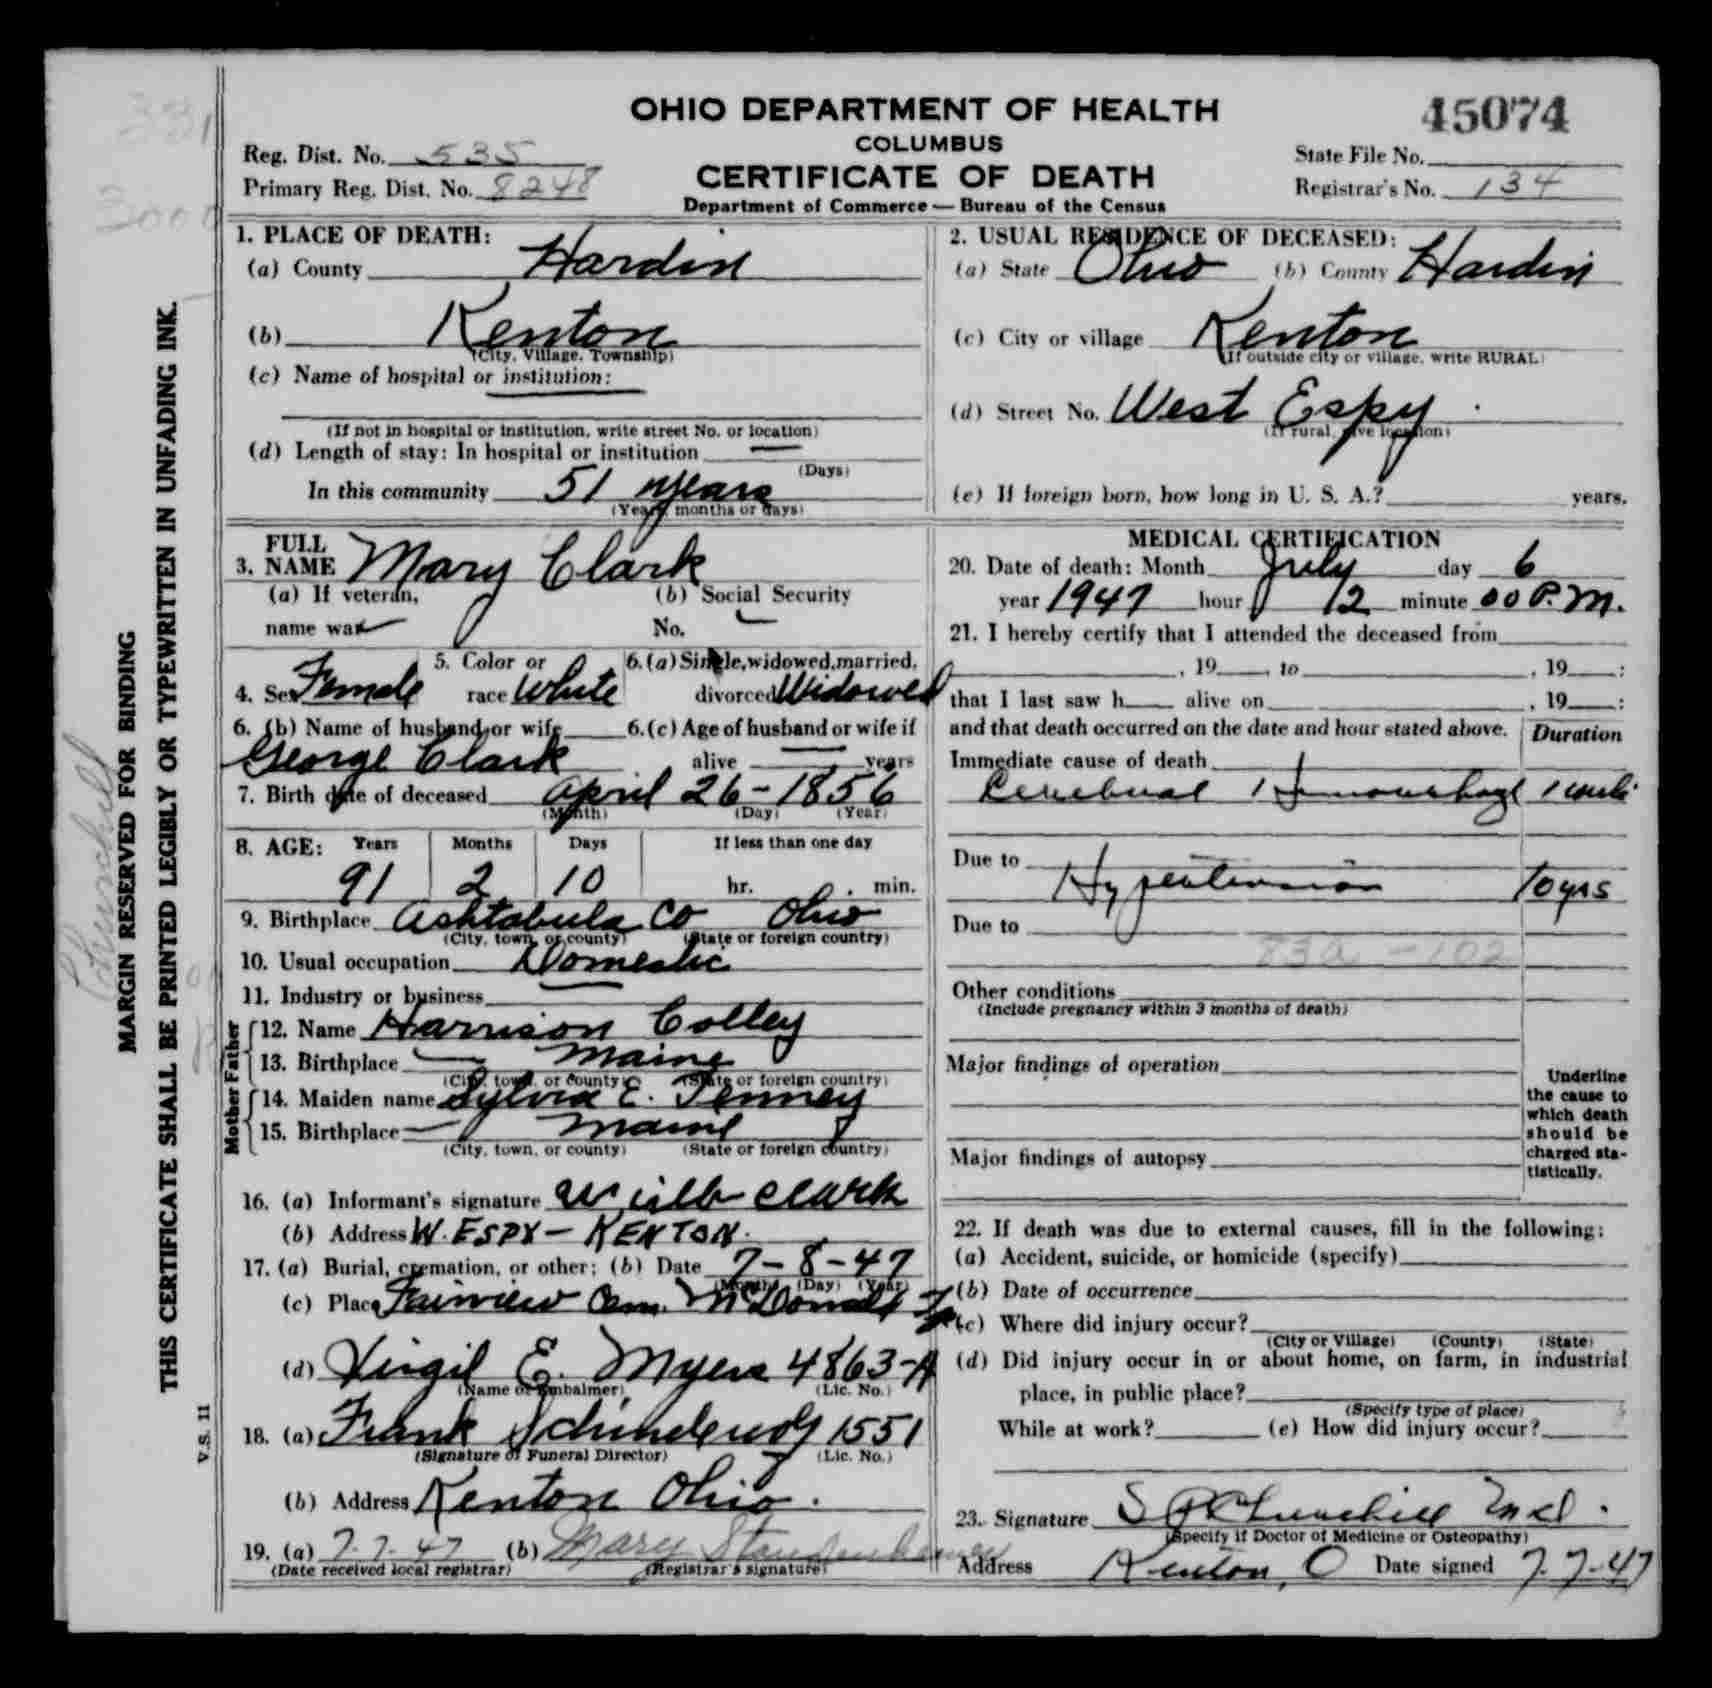 OHIO DEPARTMENT OF HEALTH
COLUMBUS
CERTIFICATE OF DEATH
Department of Commerce — Bureau of the Census
45074
Reg. Dist. No. 535
Primary Reg. Dist. No. 8248
State File No.
Registrar's No. 134
3000
Churchill
MARGIN RESERVED FOR BINDING
THIS CERTIFICATE SHALL BE PRINTED LEGIBLY OR TYPEWRITTEN IN UNFADING INK.
V.S. 11
1. PLACE OF DEATH:
(a) County Hardin
(b) Kenton
(City, Village, Township)
(c) Name of hospital or institution:
(If not in hospital or institution, write street No. or location)
(d) Length of stay: In hospital or institution —
(Days)
In this community 51 years
(Years, months or days)
2. USUAL RESIDENCE OF DECEASED:
(a) State Ohio (b) County Hardin
(c) City or village Kenton
(If outside city or village, write RURAL)
(d) Street No. West Espy
(If rural, give location)
(e) If foreign born, how long in U. S. A.? years.
3. FULL NAME Mary Clark
(a) If veteran, name war —
(b) Social Security No. —
4. Sex Female 5. Color or race White 6. (a) Single, widowed, married, divorced Widowed
6. (b) Name of husband or wife George Clark
6. (c) Age of husband or wife if alive — years
7. Birth date of deceased April 26 - 1856
(Month) (Day) (Year)
8. AGE: Years Months Days If less than one day
91 2 10 hr. min.
9. Birthplace Ashtabula Co Ohio
(City, town, or county) (State or foreign country)
10. Usual occupation Domestic
11. Industry or business
Father
12. Name Harrison Colley
13. Birthplace — Maine
(City, town, or county) (State or foreign country)
Mother
14. Maiden name Sylvia E. Tenney
15. Birthplace — Maine
(City, town, or county) (State or foreign country)
16. (a) Informant's signature Wilb Clark
(b) Address W. ESPY - KENTON.
17. (a) Burial, cremation, or other; (b) Date 7-8-47
(Month) (Day) (Year)
(c) Place Fairview Cem. McDonald Tp
(d) Virgil E. Myers 4863-A
(Name of Embalmer) (Lic. No.)
18. (a) Frank Schindewolf 1551
(Signature of Funeral Director) (Lic. No.)
(b) Address Kenton Ohio.
19. (a) 7-7-47 (b) Mary
(Date received local registrar) (Registrar's signature)
MEDICAL CERTIFICATION
20. Date of death: Month July day 6
year 1947 hour 12 minute 00 P.M.
21. I hereby certify that I attended the deceased from
, 19 , to , 19 :
that I last saw h alive on , 19 :
and that death occurred on the date and hour stated above. Duration
Immediate cause of death
Cerebral Hemorrhage 1 week
Due to Hypertension 10 yrs
Due to
83a - 102
Other conditions
(Include pregnancy within 3 months of death)
Major findings of operation
Major findings of autopsy
Underline the cause to which death should be charged statistically.
22. If death was due to external causes, fill in the following:
(a) Accident, suicide, or homicide (specify)
(b) Date of occurrence
(c) Where did injury occur?
(City or Village) (County) (State)
(d) Did injury occur in or about home, on farm, in industrial place, in public place?
(Specify type of place)
While at work? (e) How did injury occur?
23. Signature S P Churchill M.d.
(Specify if Doctor of Medicine or Osteopathy)
Address Kenton, O Date signed 7-7-47